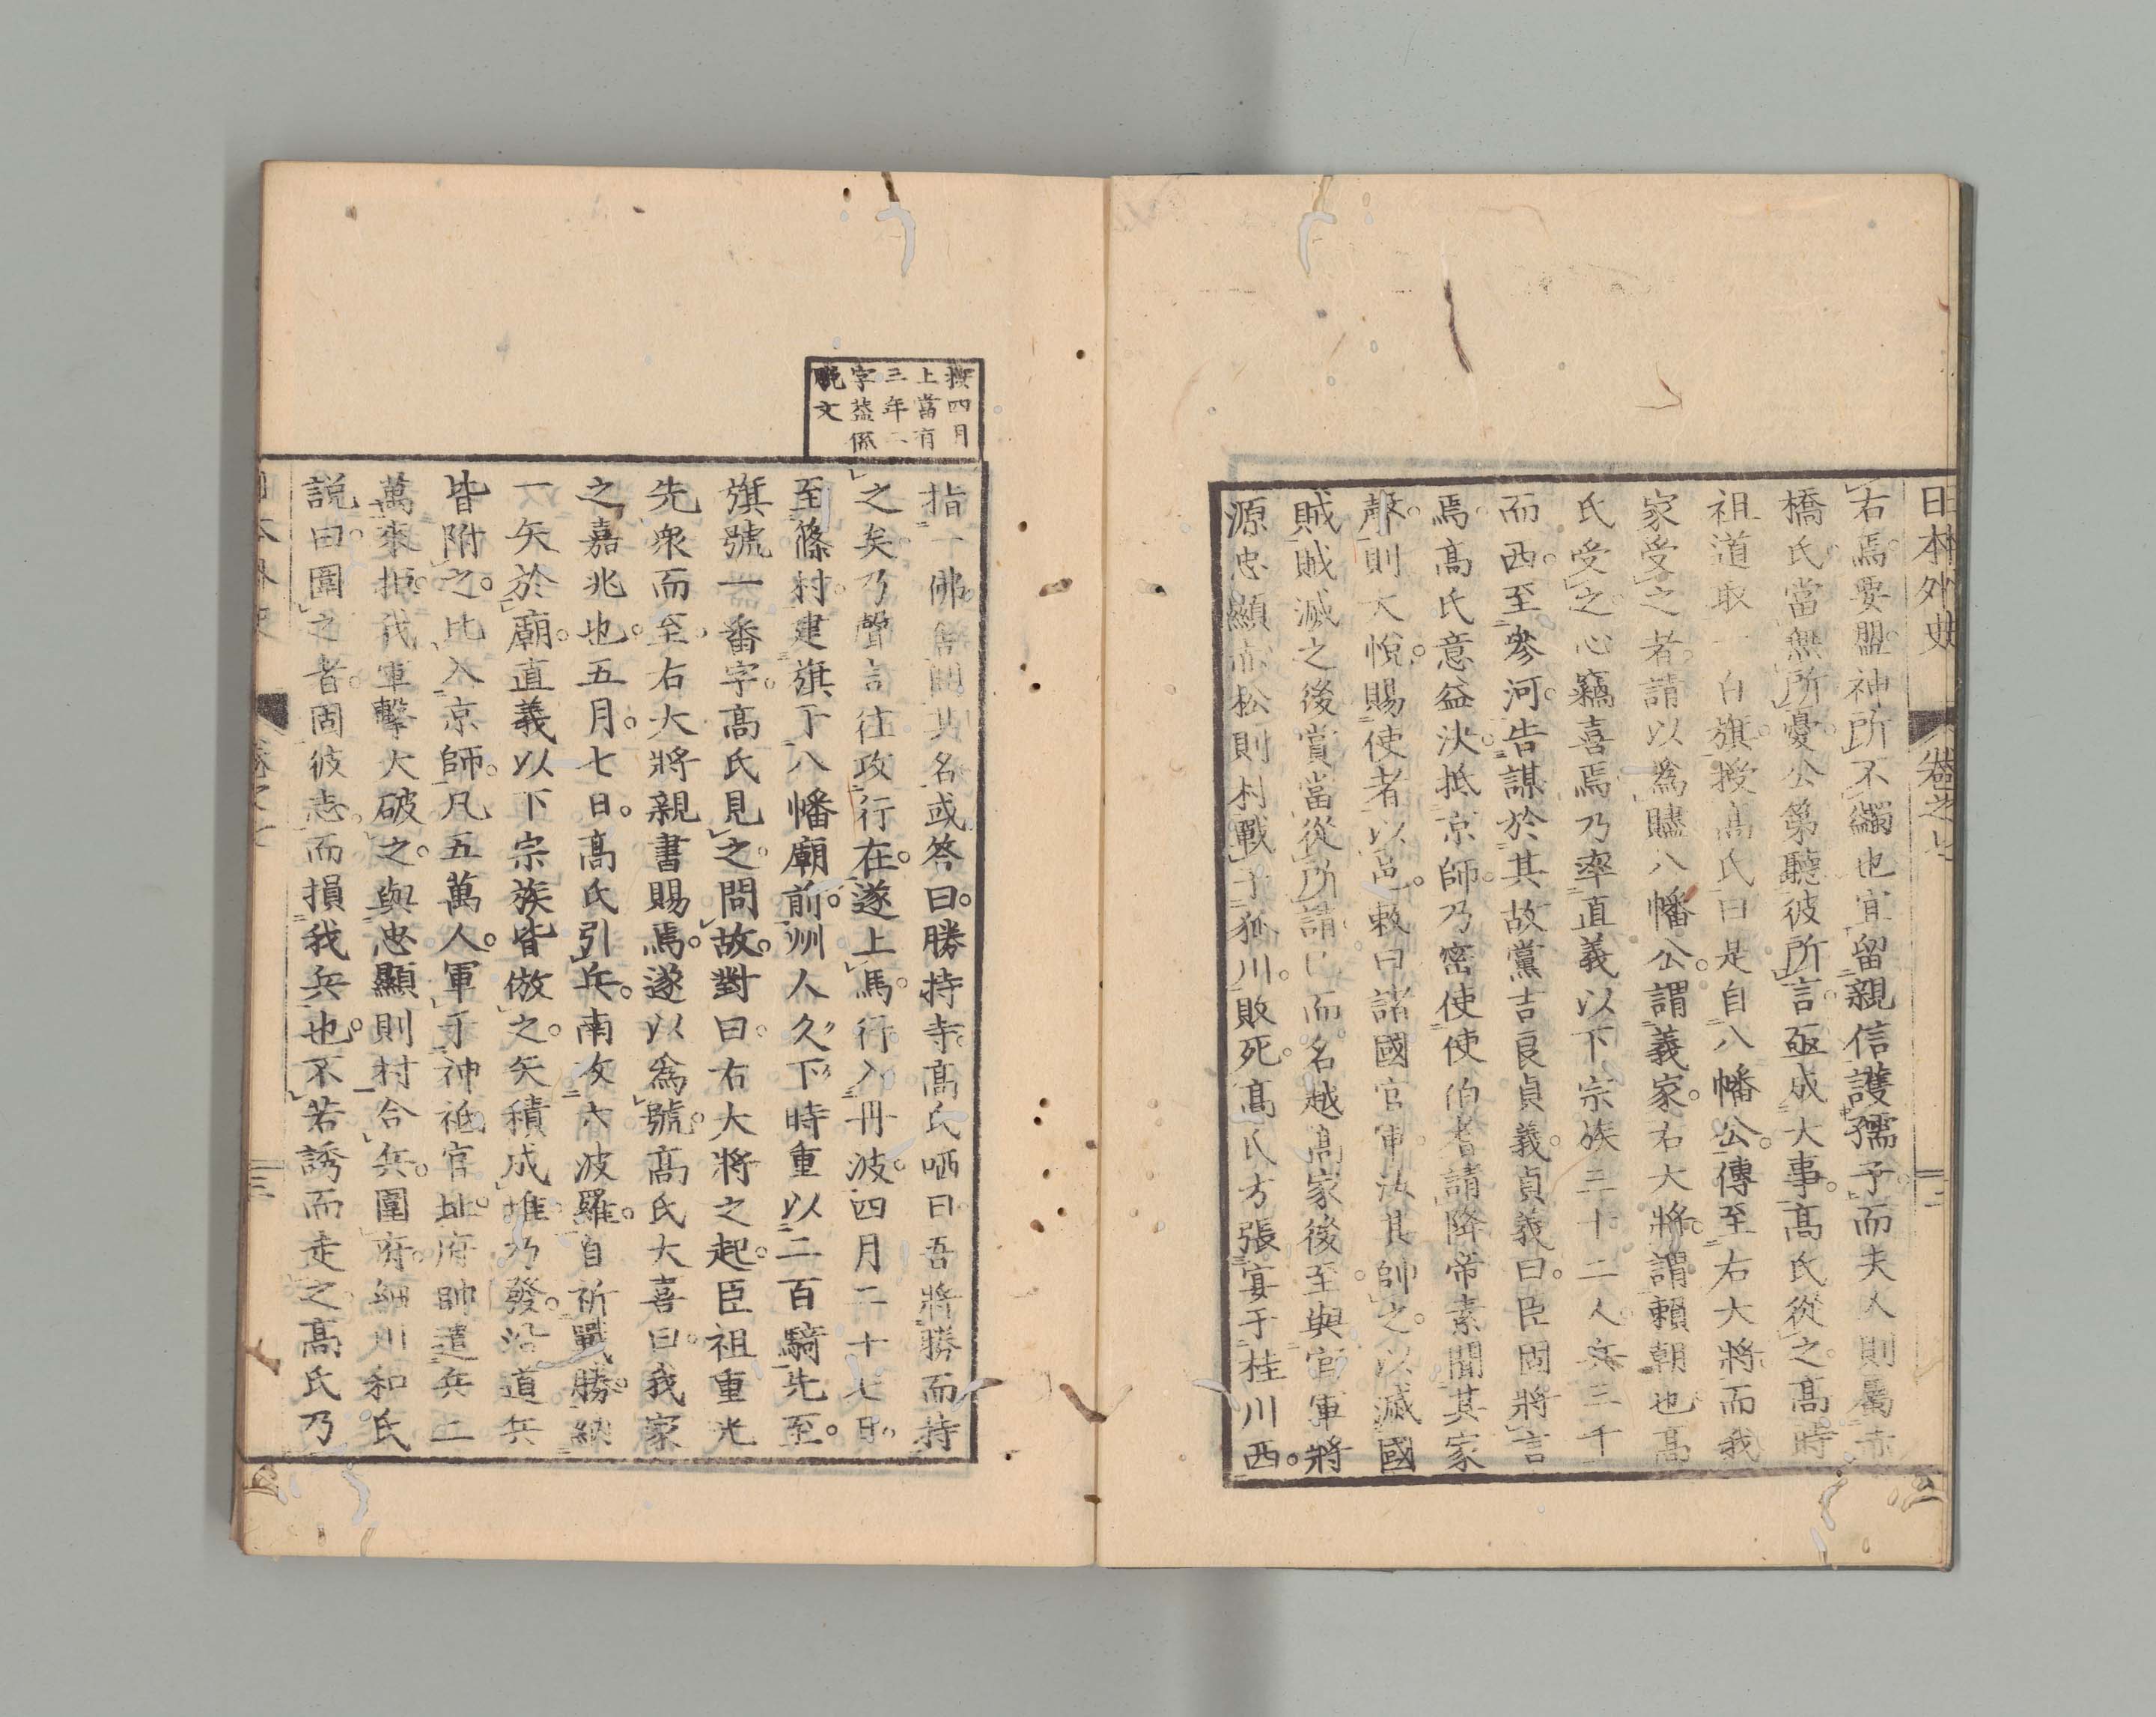 日本外史 卷之七 二
右焉要盟神所不蠲也宜留親信護孺子而夫人則屬赤
橋氏當無所憂公第聽彼所言亟成大事高氏從之高時
祖道取一白旗授高氏曰是自八幡公傳至右大將而我
家受之者請以爲贐八幡公謂義家右大將謂賴朝也高
氏受之心竊喜焉乃率直義以下宗族三十二人兵三千
而西至參河告謀於其故黨吉良貞義貞義曰臣固將言
焉高氏意益決抵京師乃密使使伯耆請降帝素聞其家
聲則大悅賜使者以邑敕曰諸國官軍汝其帥之以滅國
賊賊滅之後賞當從所請已而名越高家後至與官軍將
源忠顯赤松則村戰于狐川敗死高氏方張宴于桂川西
按四月
上當有
三年二
字蓋係
脫文
指一佛舍問其名或答曰勝持寺高氏哂曰吾將勝而持
之矣乃聲言往攻行在遂上馬行入丹波四月二十七日
至篠村建旗于八幡廟前州人久下時重以二百騎先至
旗號一番字高氏見之問故對曰右大將之起臣祖重光
先衆而至右大將親書賜焉遂以爲號高氏大喜曰我家
之嘉兆也五月七日高氏引兵南攻六波羅自祈戰勝納
一矢於廟直義以下宗族皆倣之矢積成堆乃發沿道兵
皆附之比入京師凡五萬人軍于神祇官址府帥遣兵二
萬來拒我軍擊大破之與忠顯則村合兵圍府細川和氏
說曰圍之者固彼志而損我兵也不若誘而走之高氏乃
日本外史 卷之七 三